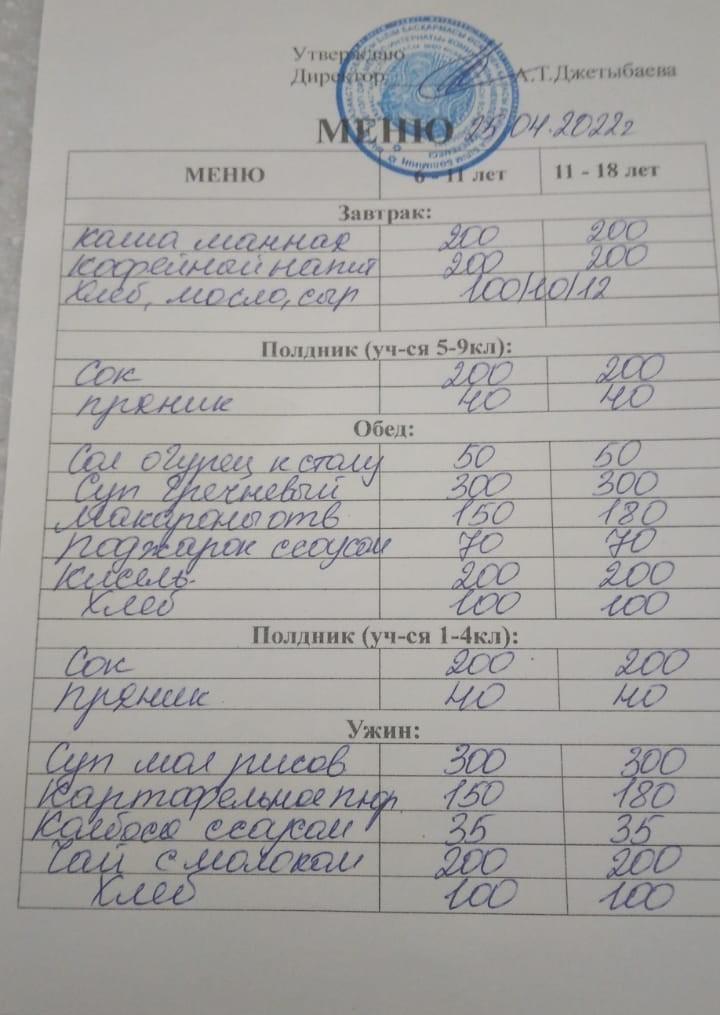 Утверждаю
Директор А.Т.Джетыбаева
МЕНЮ 25.04.2022г
МЕНЮ 6 - 11 лет 11 - 18 лет
Завтрак:
Каша манная 200 200
Кофейный напит 200 200
Хлеб, масло, сыр 100/10/12
Полдник (уч-ся 5-9кл):
Сок 200 200
пряник 40 40
Обед:
Сол огурец к столу 50 50
Суп гречневый 300 300
Макароны отв 150 180
Поджарок с соусом 70 70
Кисель 200 200
Хлеб 100 100
Полдник (уч-ся 1-4кл):
Сок 200 200
Пряник 40 40
Ужин:
Суп мол рисов 300 300
Картофельное пюр 150 180
Колбаса 35 35
Чай с молоком 200 200
Хлеб 100 100